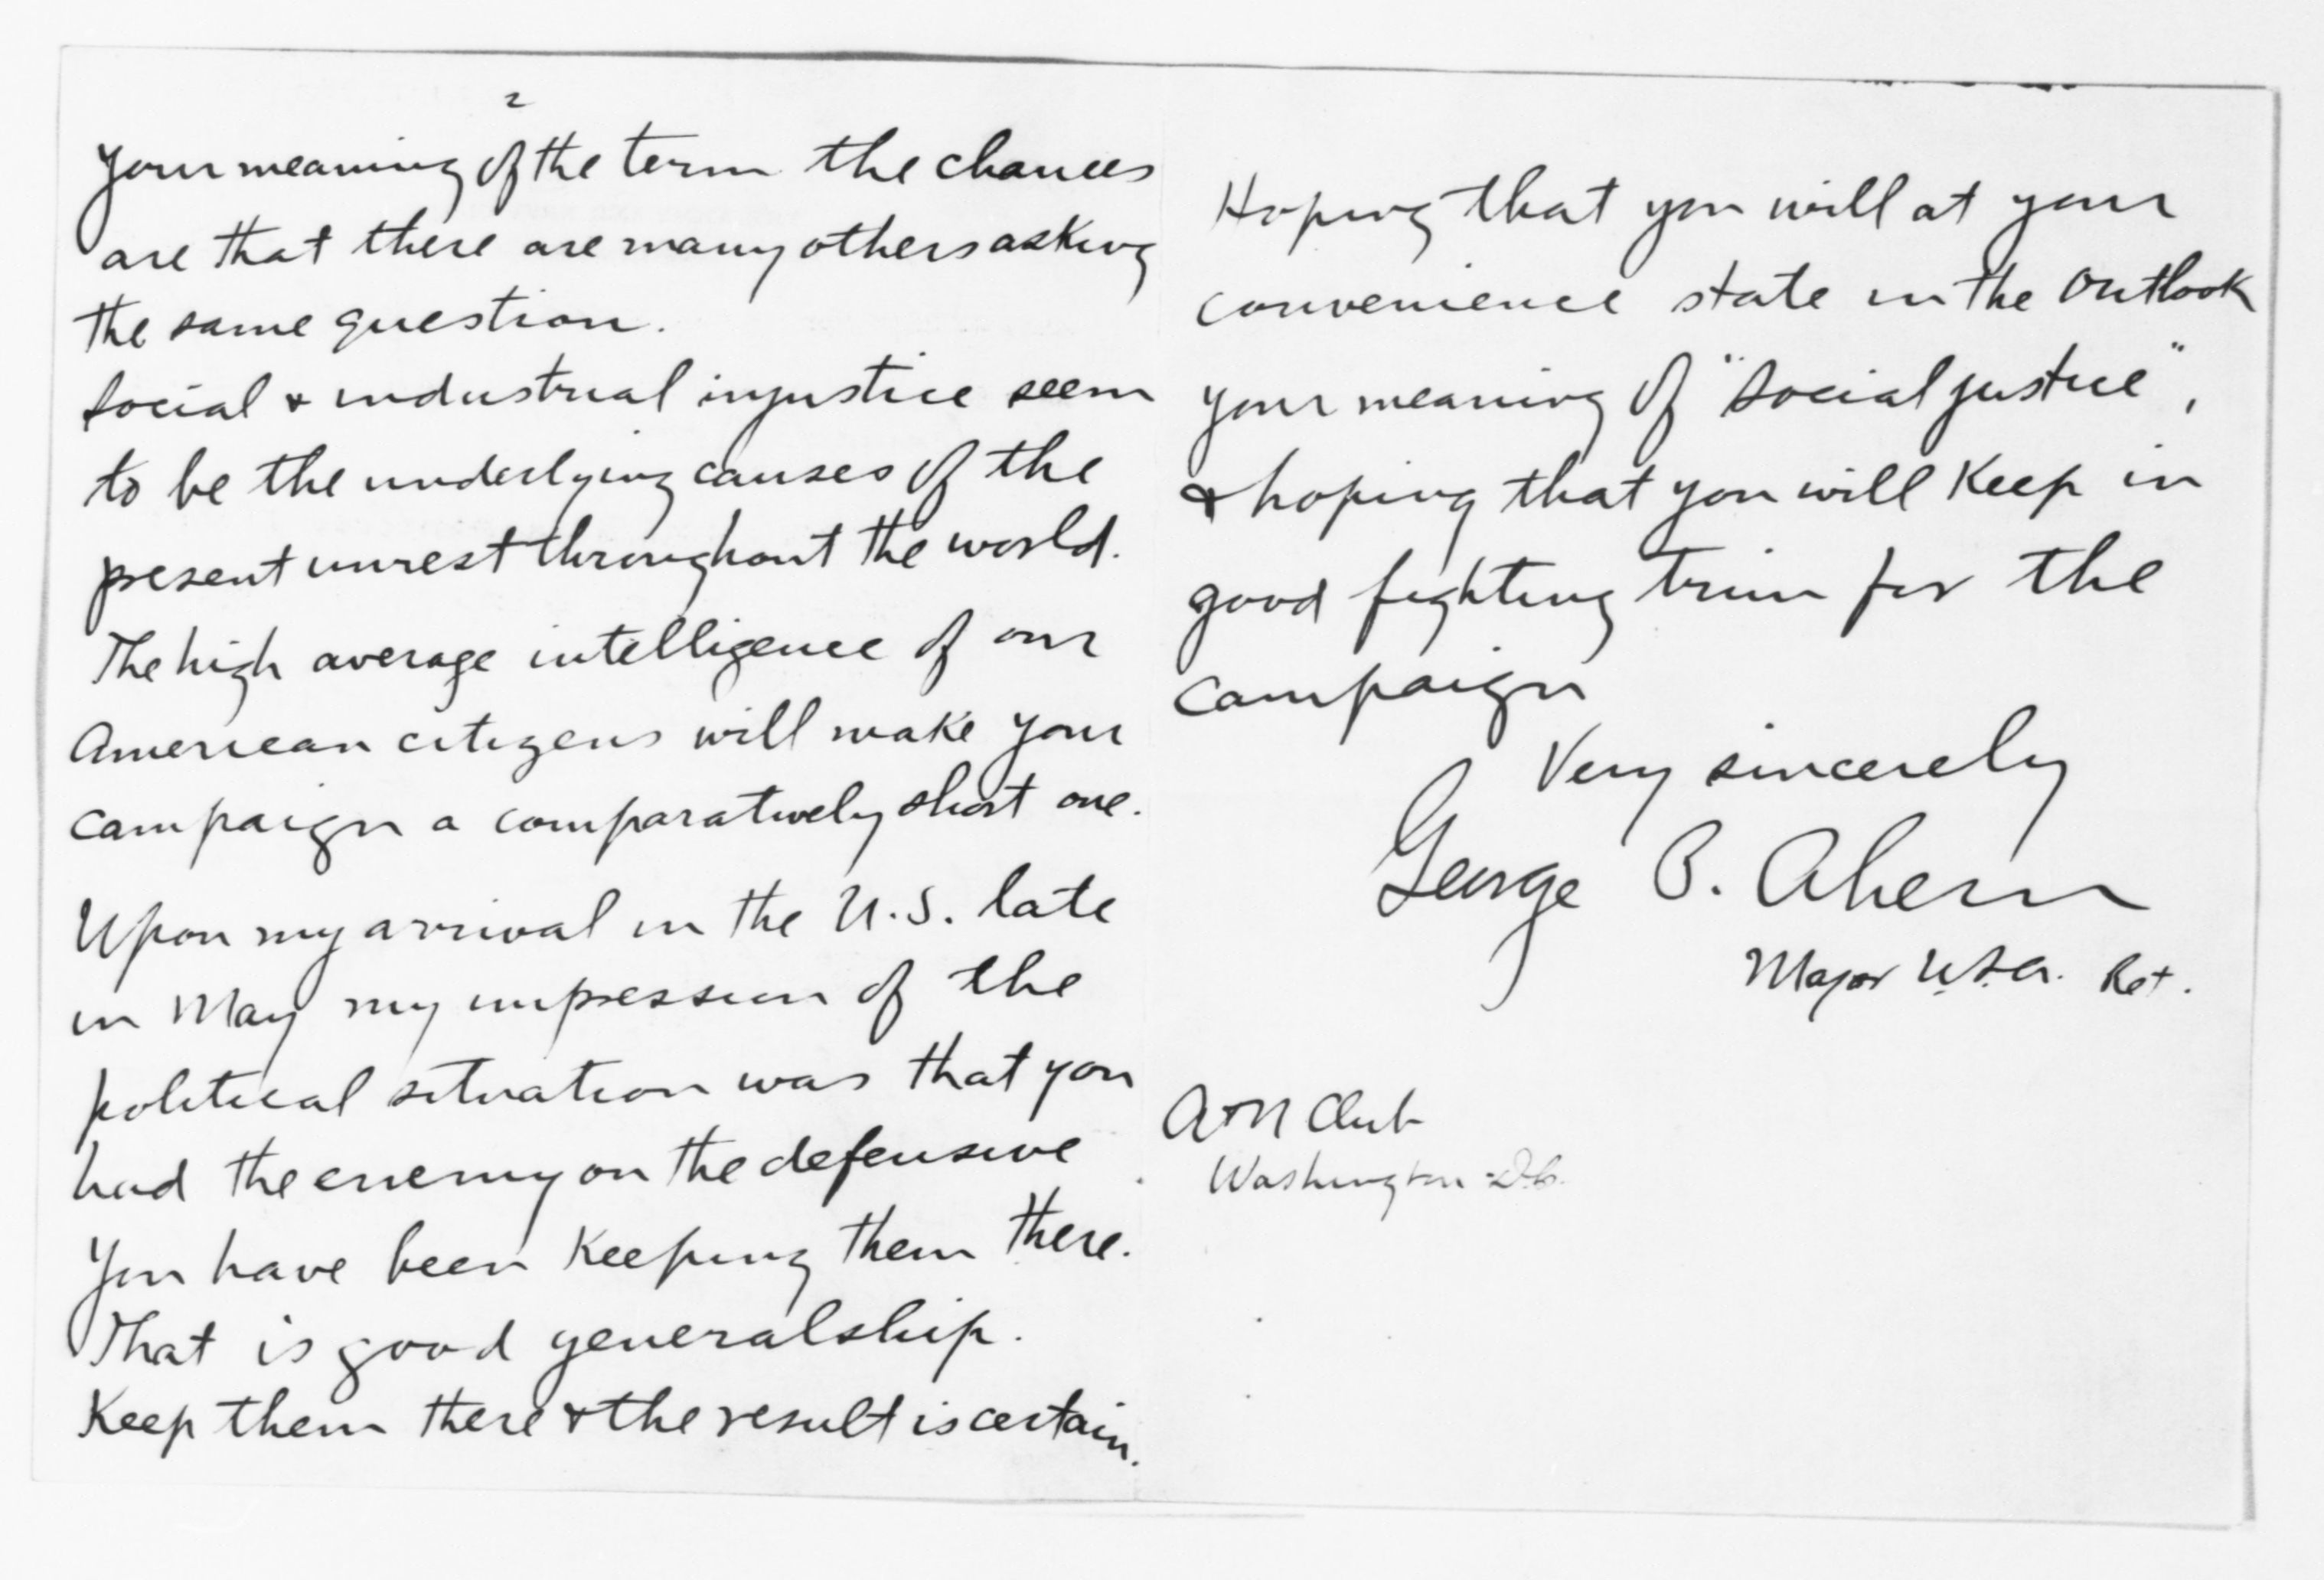 2
your meaning of the term the chances
are that there are many others asking
the same question.
Social & industrial injustice seem
to be the underlying causes of the
present unrest throughout the world.
The high average intelligence of our
American citizens will make your
campaign a comparatively short one.
Upon my arrival in the U.S. late
in May my impression of the
political situation was that you
had the enemy on the defensive
You have been keeping them there.
That is good generalship.
Keep them there & the result is certain.
Hoping that you will at your
convenience state in the Outlook
your meaning of "Social justice",
& hoping that you will keep in
good fighting trim for the
campaign
Very sincerely
George P. Ahern
Major U.S.A. Ret.
A & N Club
Washington D.C.